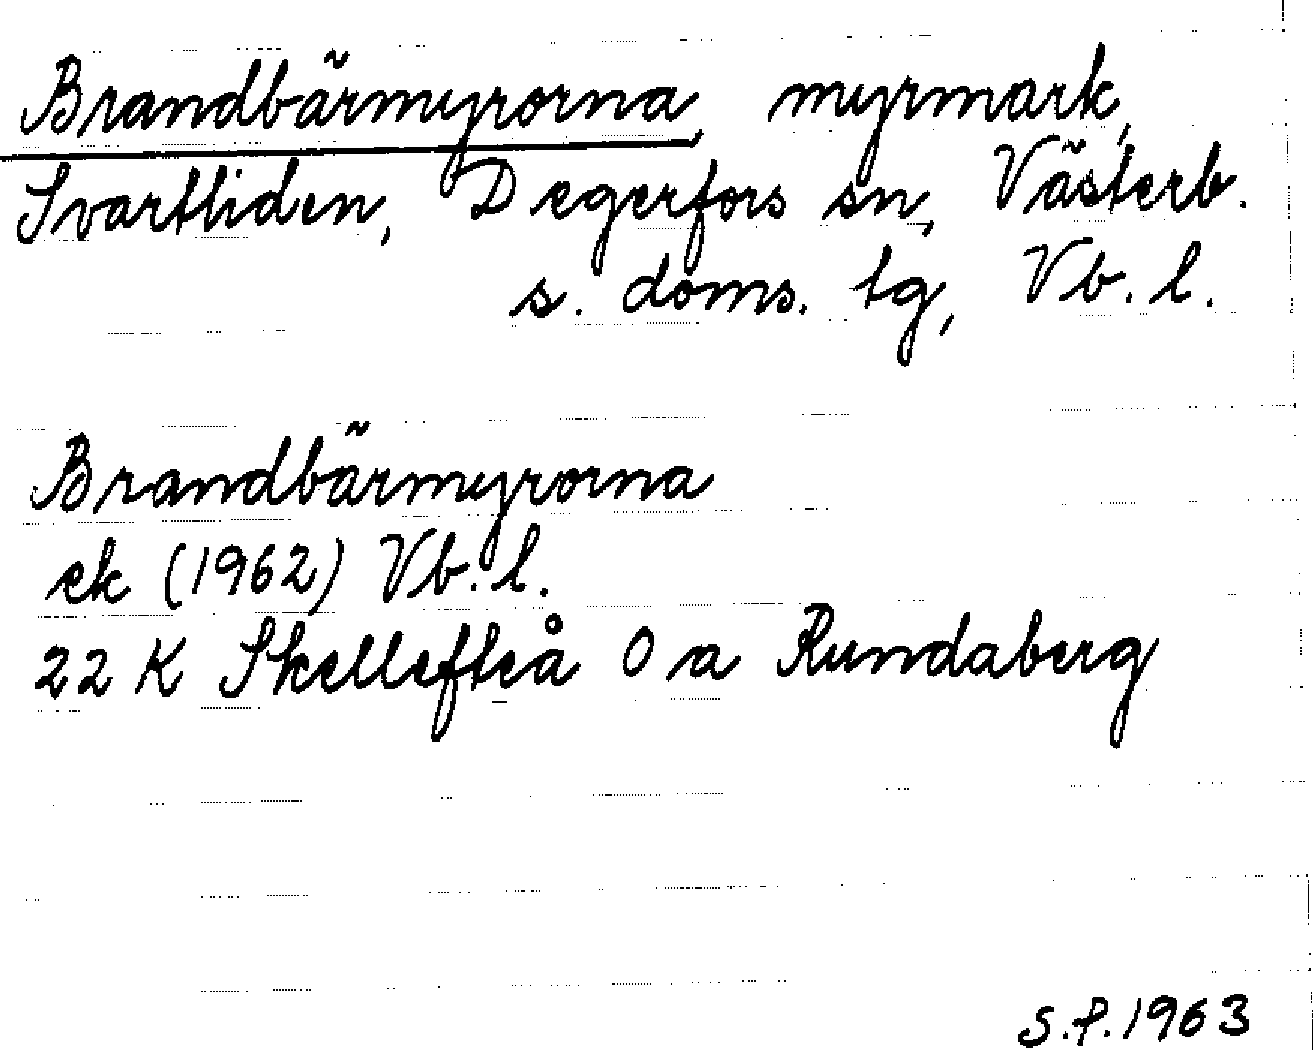 Brandbärmyrorna, myrmark,
Svartliden, Degerfors sn, Västerb.
s. doms. tg, Vb. l.
Brandbärmyrorna
ek (1962) Vb. l.
22 K Skellefteå O a Rundaberg
S.f. 1963